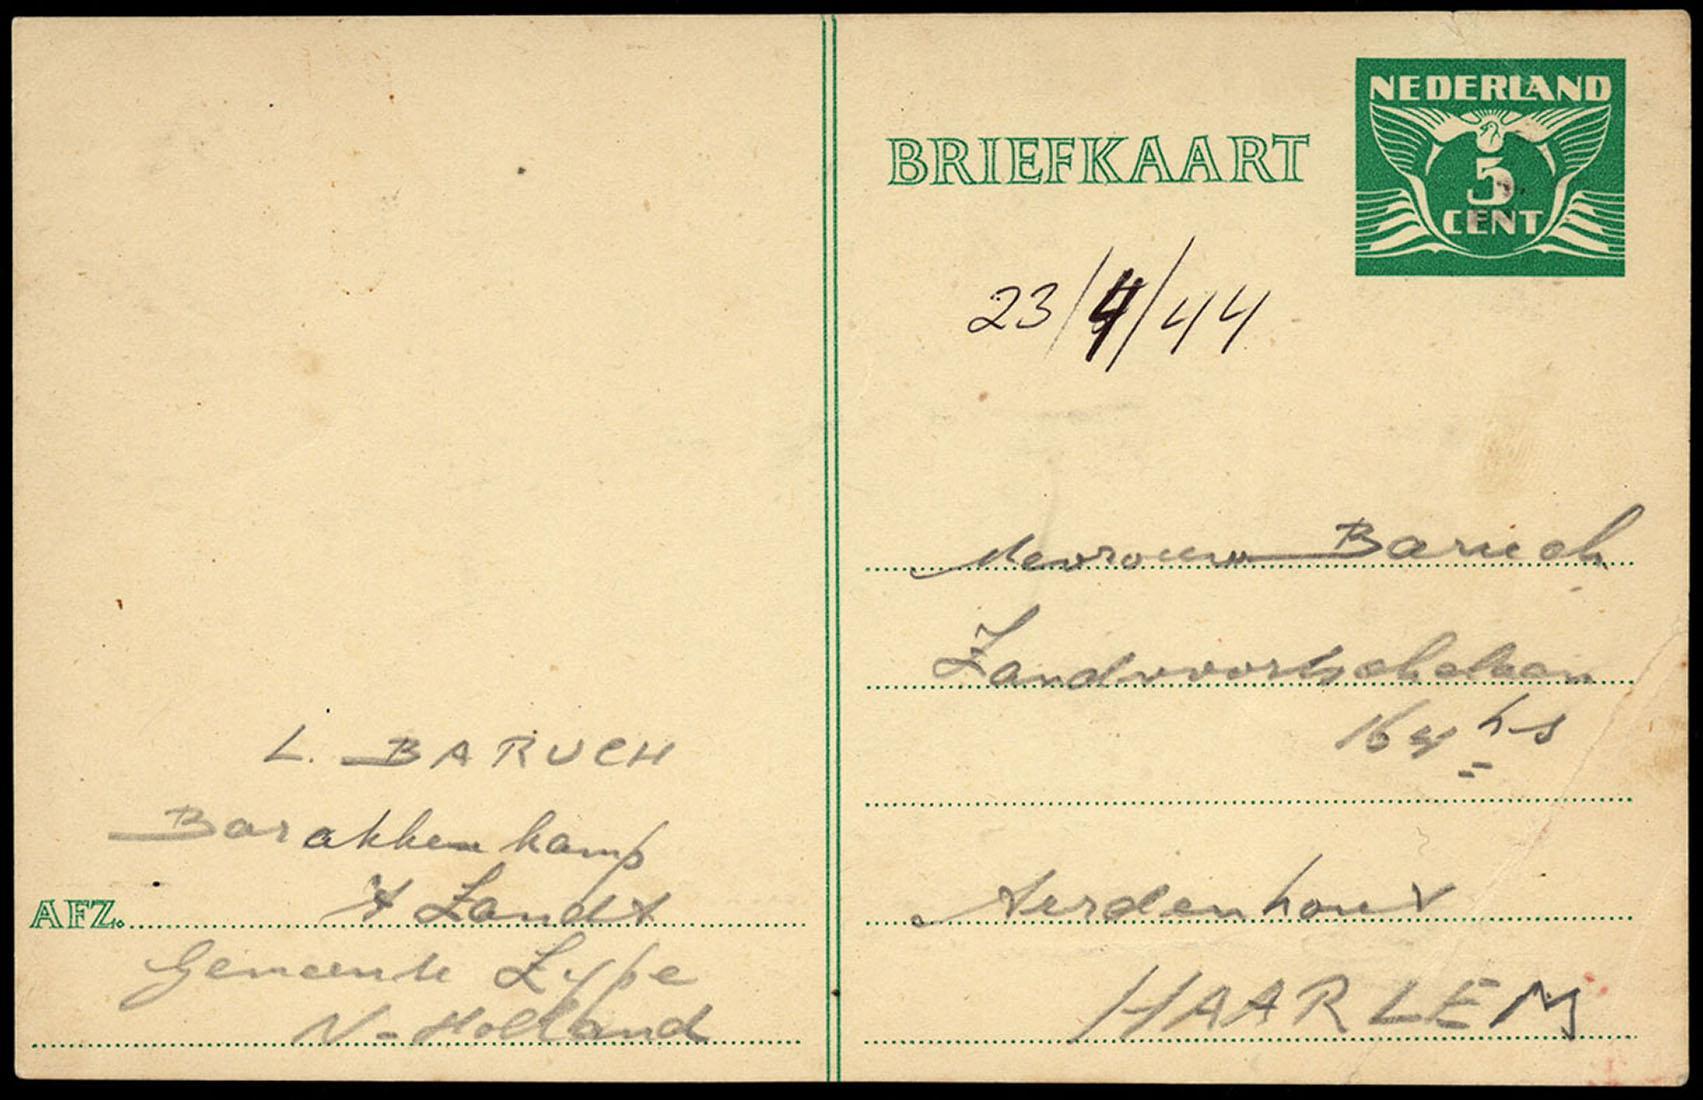 NEDERLAND
5
CENT
BRIEFKAART
23/4/44
Mevrouw Baruch
Zandvoortschelaan
164 hs
Aerdenhout
HAARLEM
L. BARUCH
Barakkenkamp
't Zandt
AFZ.
Gemeente Zype
N-Holland